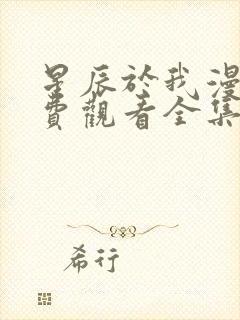 星辰於我漫
費觀看全集
希行